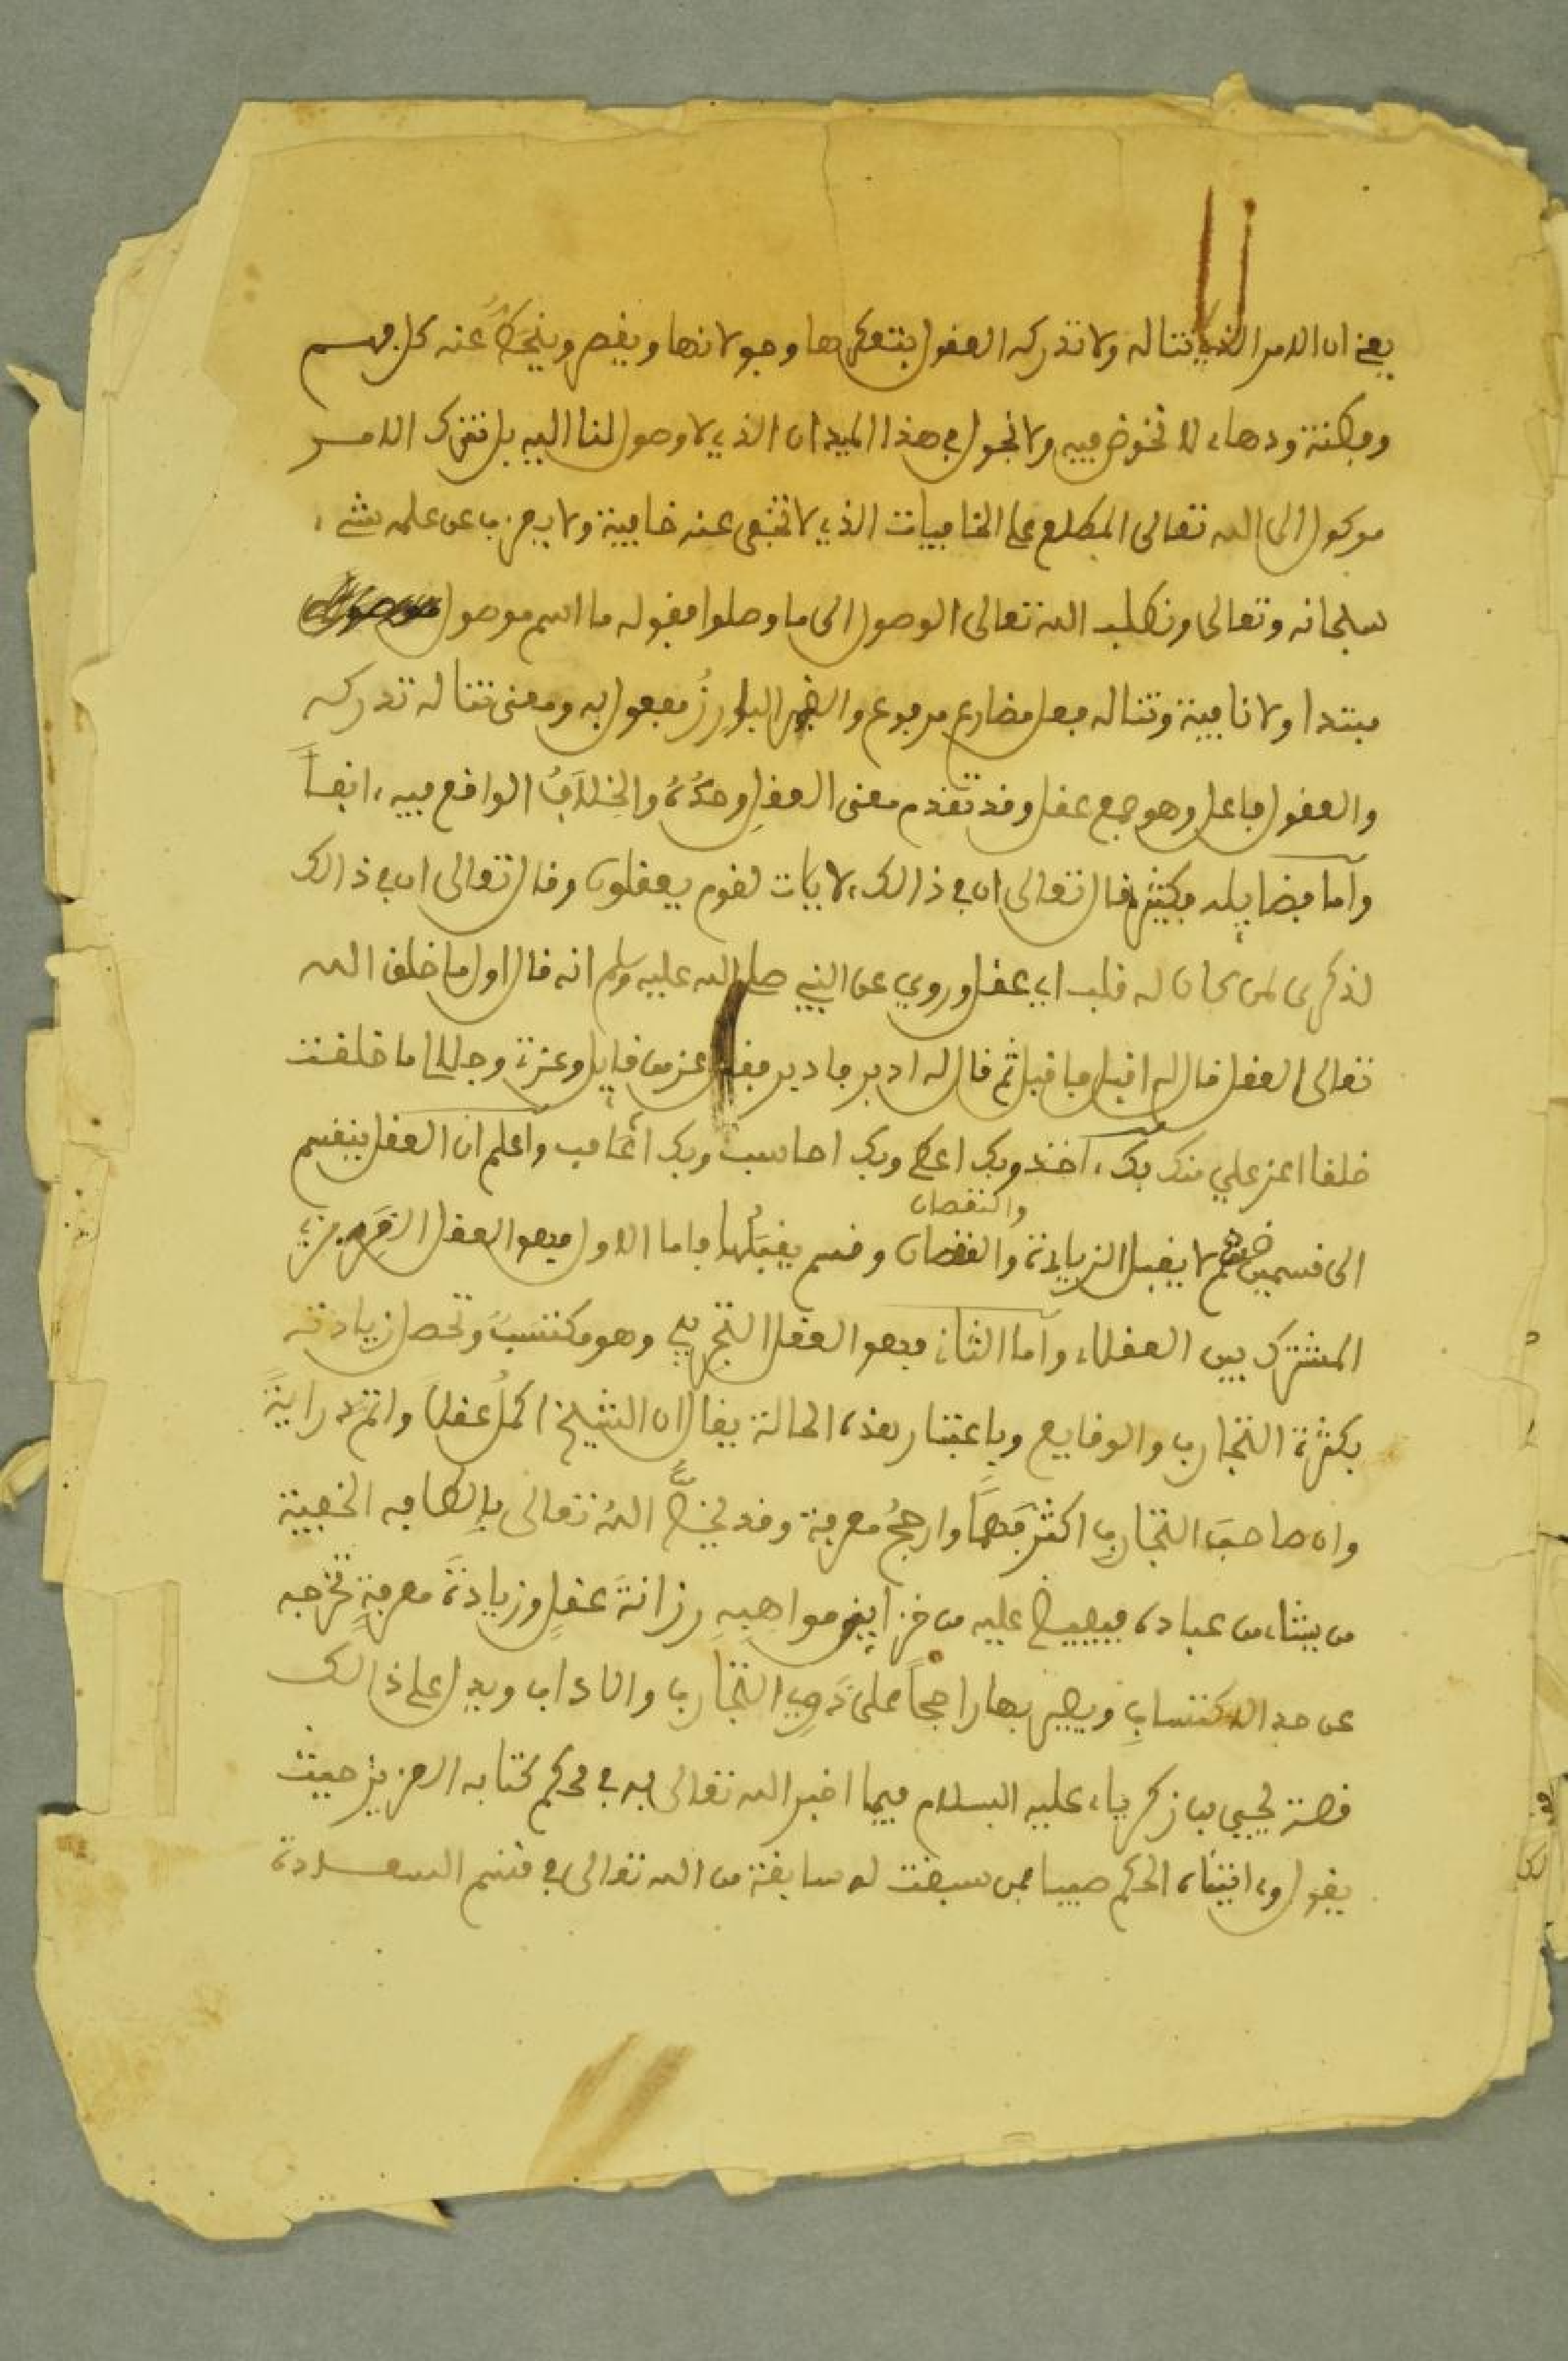 يعني ان الامر الذي لا تناله ولا تدركه العقول بتفكرها وجولانها ويقصر وينحط عنه كل فهم
وفطنة ودهاء لا نخوض فيه ولا نجول في هذا الميدان الذي لا وصول لنا اليه بل نترك الامر
موكولا الى الله تعالى المطلع على الخافيات الذي لا تخفى عنه خافية ولا يعزب عن علمه شيء
سبحانه وتعالى ونطلب الله تعالى الوصول الى ما وصلوا فقوله ما اسم موصول
مبتدا ولا نافية وتناله فعل مضارع مرفوع والضمير البارزُ مفعول به ومعنى تناله تدركه
والعقول فاعل وهو جمع عقل وقد تقدم معنى العقلِ وحدُّهُ والخِلَافُ الواقع فيه ايضاً
وأما فضايله فكثيرة قال تعالى ان في ذالك لايات لقوم يعقلون وقال تعالى ان في ذالك
لذكرى لمن كان له قلب اي عقل وروي عن النبي صلى الله عليه وسلم انه قال اول ما خلق الله
تعالى العقل قال له اقبل فاقبل ثم قال له ادبر فادبر فقال عز من قايل وعزتي وجلالي ما خلقت
خلقا اعز علي منك بك ءاخذ وبك اعطي وبك احاسب وبك اعاقب واعلم ان العقل ينقسم
الى قسمين قسم لا يقبل الزيادة والنقصان وقسم يقبَلُهما فاما الاول فهو العقل الغَريزي
والنقصان
المشترك بين العقلاء وأما الثاني فهو العقل التجربي وهو مكتسبٌ وتحصل زيادته
بكثرة التجارب والوقايع وباعتبار هذه الحالة يقال ان الشيخ اكملُ عقلاً واتمُّ دراية
وان صاحبَ التجاربِ اكثرُ فهماً وارجحُ معرفة وقد يخصُّ اللهُ تعالى بإلطافه الخفية
من يشاء من عباده فيفيض عليه من خزاين مواهبهِ رزانةَ عقلٍ وزيادةَ معرفةٍ تخرجه
عن حد الاكتسابِ ويصير بها راجحاً على ذَوِي التجَاربِ والاداب ويدل على ذالك
قصة يحيى بن زكرياء عليه السلام فيما اخبر الله تعالى به في محكم كتابه العزيز حيث
يقول وءاتيناه الحكم صبيا فمن سبقت له سابقة من الله تعالى في قسم السعادة